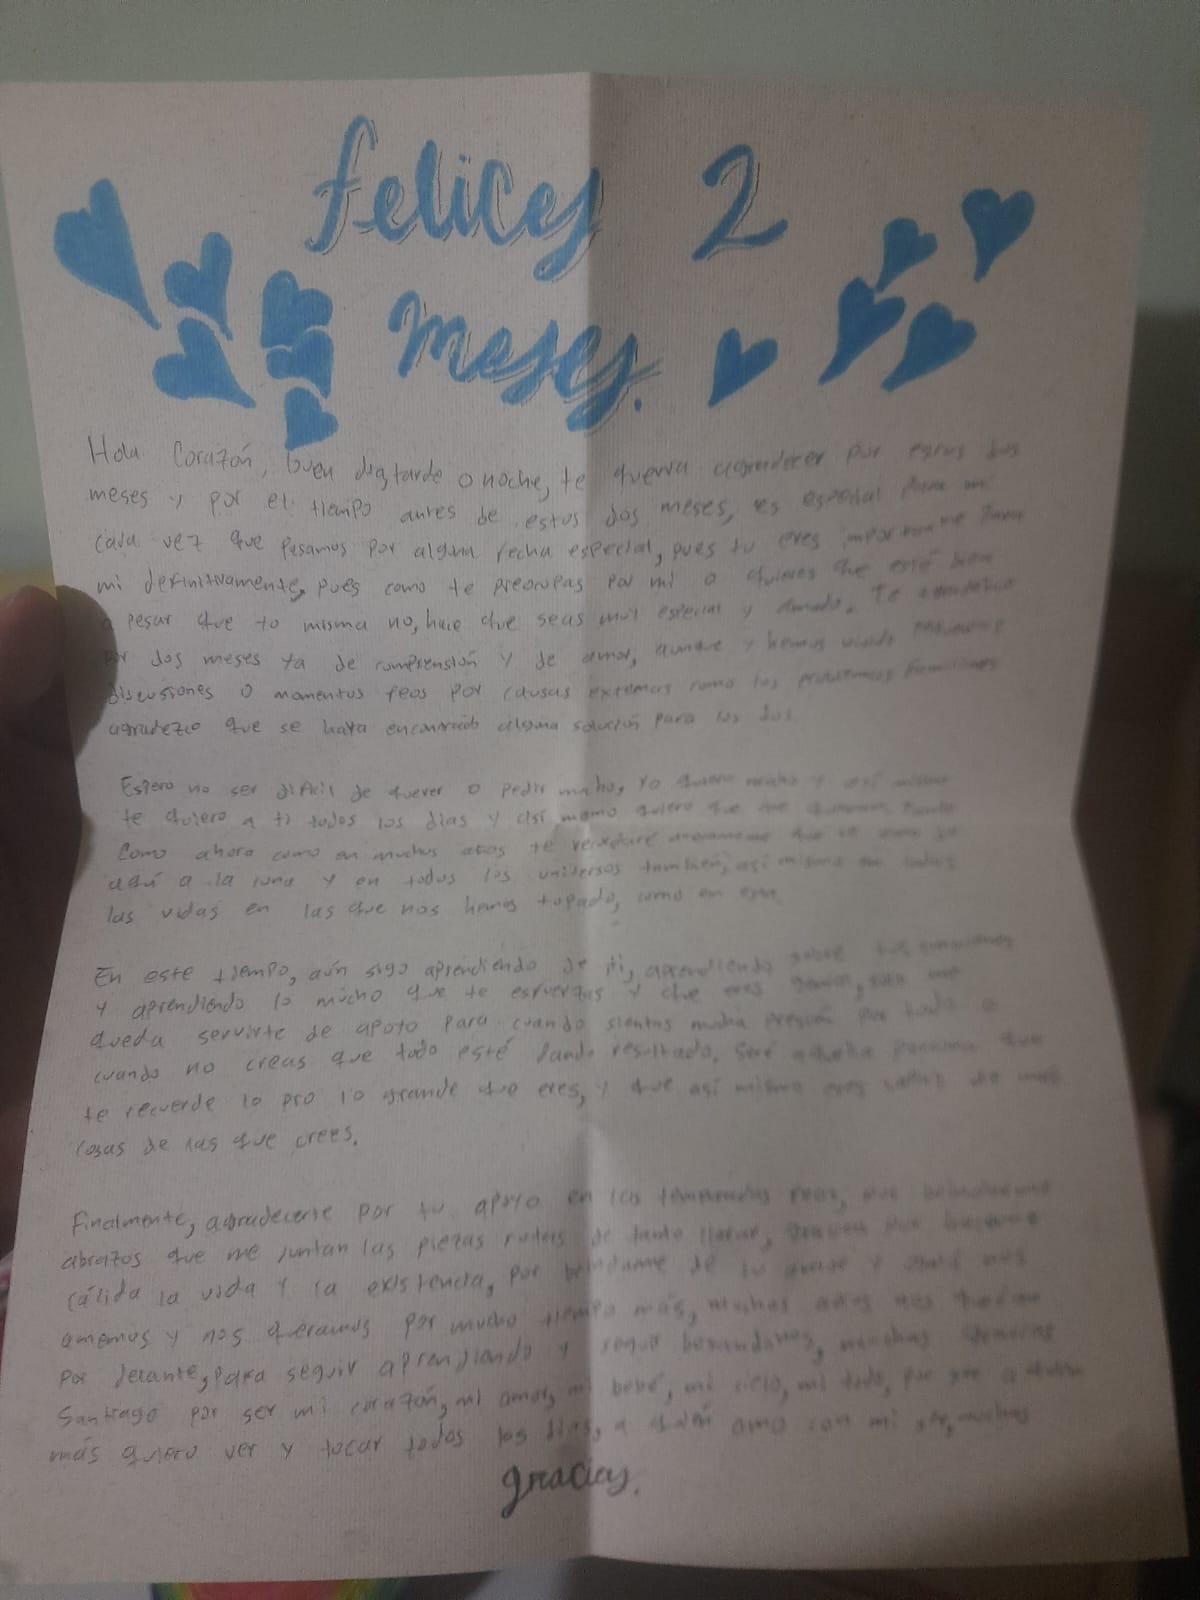 Felices 2
Meses.
Hola Corazón, buen día, tarde o noche, te querría agradecer por estos dos
meses y por el tiempo antes de estos dos meses, es especial para mi
cada vez que pasamos por alguna fecha especial, pues tu eres importante para
mi definitivamente, pues como te preocupas por mi o quieres que esté bien
a pesar que yo misma no, hace que seas muy especial y amado. Te agradezco
por dos meses ya de comprensión y de amor, aunque y hemos vivido pequeñas
discusiones o momentos feos por causas externas como los problemas familiares
agradezco que se haya encontrado alguna solución para los dos.
Espero no ser difícil de querer o pedir mucho, yo quiero mucho y así mismo
te quiero a ti todos los días y así mismo quiero que me quieras, tanto
como ahora como en muchos años te
aquí a la luna y en todos los universos también, así mismo en todas
las vidas en las que nos hemos topado, como en esta.
En este tiempo, aún sigo aprendiendo de ti, aprendiendo sobre tus emociones
y aprendiendo lo mucho que te esfuerzas y que eres
queda servirte de apoyo para cuando sientas mucha presión por todo o
cuando no creas que todo esté dando resultado. Seré aquella persona que
te recuerde lo pro lo grande que eres, y que así mismo eres capaz de más
cosas de las que crees.
Finalmente, agradecerte por tu apoyo en las temporadas feas, por brindarme
abrazos que me juntan las piezas rotas de tanto llorar, gracias por hacerme
cálida la vida y la existencia, por brindarme de tu amor y ojalá nos
amemos y nos queramos por mucho tiempo más, muchos años nos quedan
por delante, para seguir aprendiendo y seguir besándonos, muchas gracias
Santiago por ser mi corazón, mi amor, mi bebé, mi cielo, mi todo, por ser a quien
más quiero ver y tocar todos los días, a quien amo con mi ser, muchas
gracias.